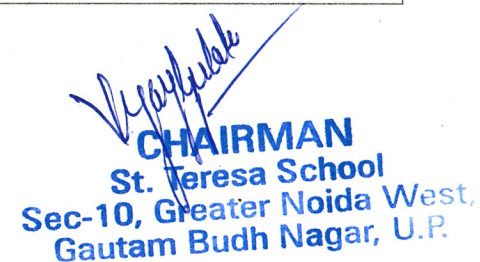 CHAIRMAN
St. Teresa School
Sec-10, Greater Noida West,
Gautam Budh Nagar, U.P.